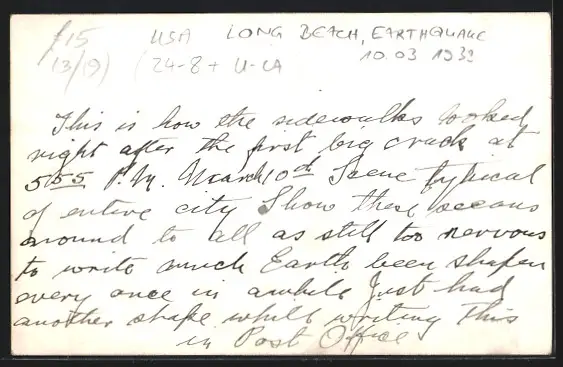 /15 USA LONG BEACH, EARTHQUAKE
13/19) (24-8+ U-CA 10.03 1933
This is how the sidewalks looked
right after the first big crack at
5 55 P.M. March 10th Scene typical
of entire city Show these sceans
around to all as still too nervous
to write much Earth been shapen
every once in awhile Just had
another shape while writing this
in Post Office